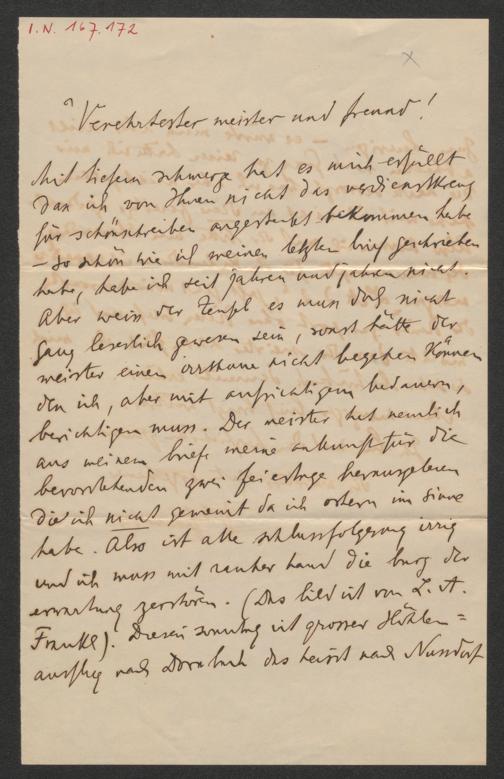 I.N. 167.172
Verehrtester meister und freund!
Mit tiefem schmerze hat es mich erfüllt
dass ich von Ihnen nicht das verdienstkreuz
für schönschreiben angesteckt bekommen habe
– so schön wie ich meinen letzten brief geschrieben
habe, habe ich seit jahren und jahren nicht.
Aber weiss der Teufel es muss doch nicht
ganz leserlich gewesen sein, sonst hätte der
meister einen irrthum nicht begehen können
den ich, aber mit aufrichtigem bedauern,
berichtigen muss. Der meister hat nemlich
aus meinem briefe meine ankunft für die
bevorstehenden zwei feiertage herausgelesen
die ich nicht gemeint da ich ostern im sinne
habe. Also ist alle schlussfolgerung irrig
und ich muss mit rauher hand die burg der
erwartung zerstören. (Das bild ist von L. A.
Frankl). Diesen sonntag ist grosser Höhlen=
ausflug nach Dornbach das heisst nach Nussdorf